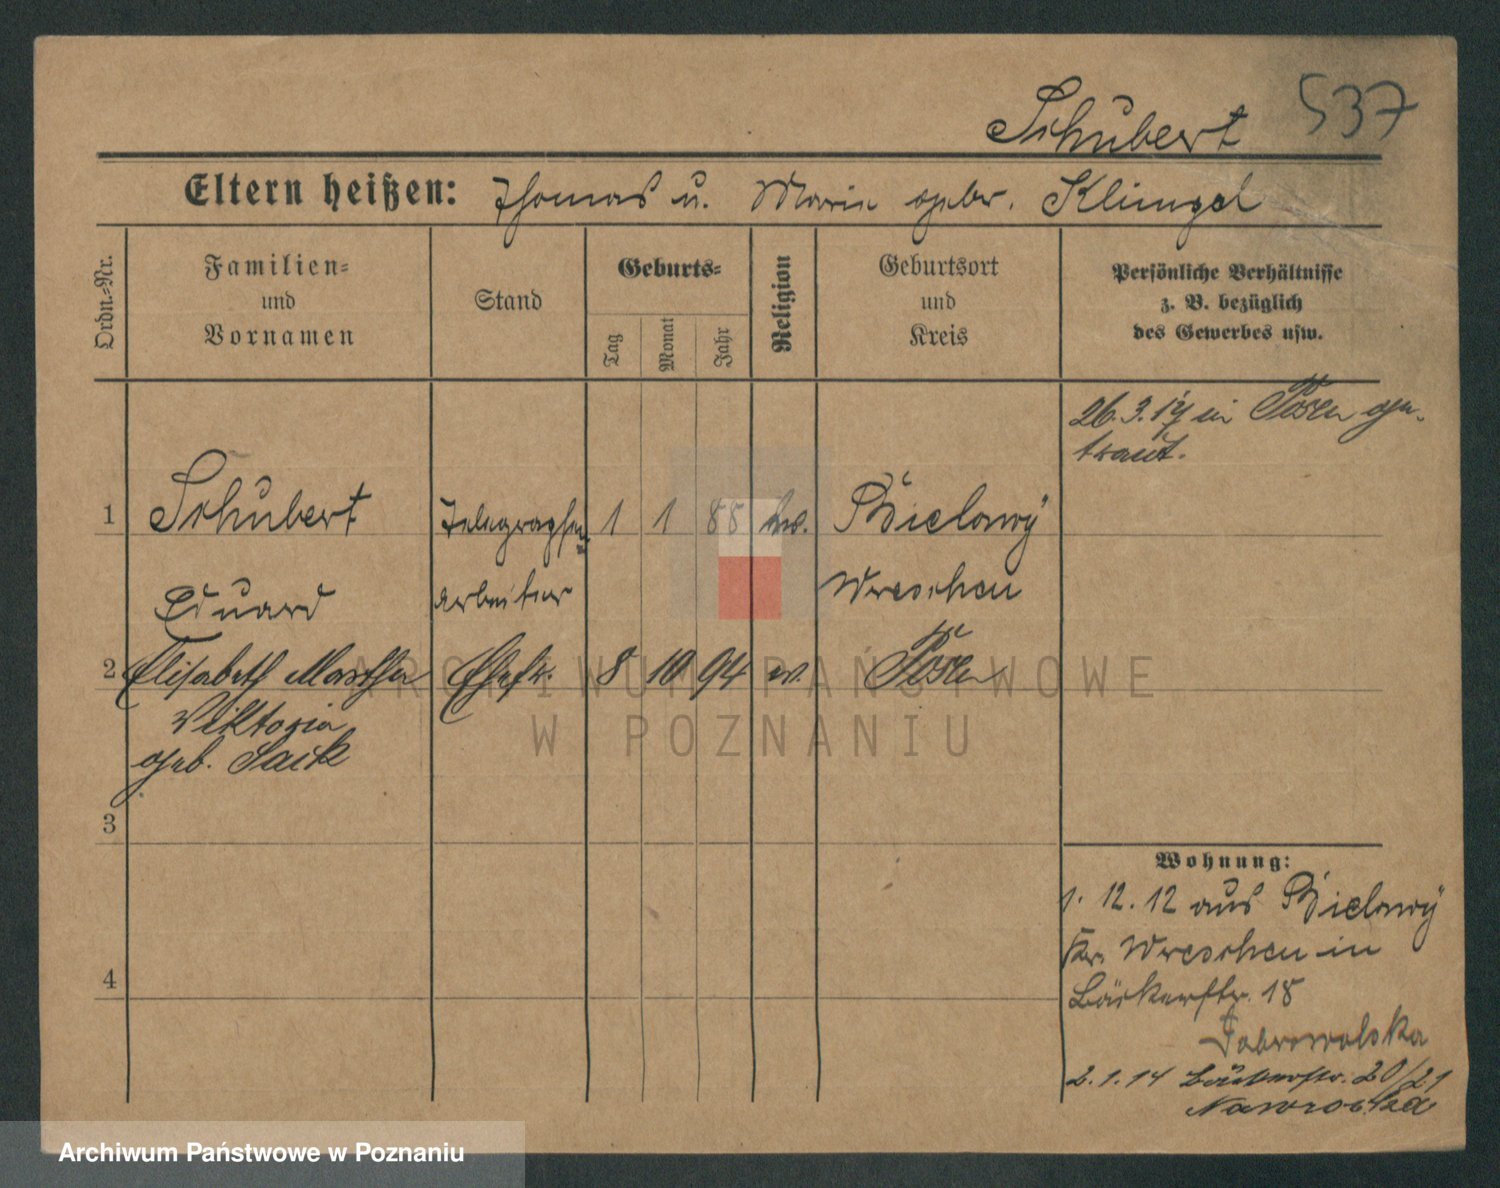 Schubert 537
Eltern heißen: Thomas u. Marie gebr. Klingel
Ordn.-Nr.
Familien-
und
Vornamen
Stand
Geburts-
Tag
Monat
Jahr
Religion
Geburtsort
und
Kreis
Persönliche Verhältnisse
z. B. bezüglich
des Gewerbes usw.
26.3.17 in Posen ge-
traut.
1 Schubert Telegraphen- 1 1 88 Bielawy
Eduard arbeiter Wreschen
2 Elisabeth Martha Ehefr. 8 10 94 ev. Posen
Viktoria
geb. Sack
3
4
Wohnung:
1. 12. 12 aus Bielawy
Kr. Wreschen in
Bäckerstr. 18
Dobrowolska
2. 1. 14 Bäckerstr. 20/21
Nawrocka
ARCHIWUM PAŃSTWOWE
W POZNANIU
Archiwum Państwowe w Poznaniu